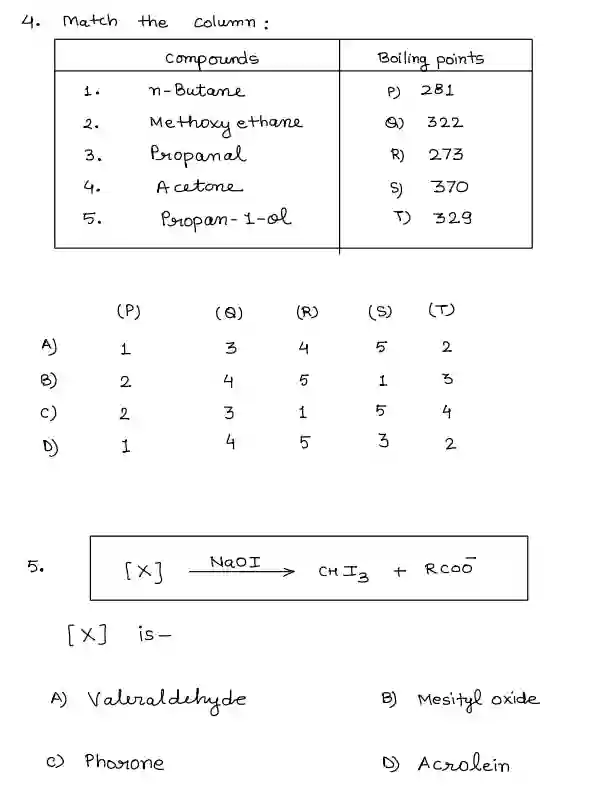 4. Match the column :
Compounds Boiling points
1. n-Butane P) 281
2. Methoxy ethane Q) 322
3. Propanal R) 273
4. Acetone S) 370
5. Propan-1-ol T) 329
(P) (Q) (R) (S) (T)
A) 1 3 4 5 2
B) 2 4 5 1 3
C) 2 3 1 5 4
D) 1 4 5 3 2
5. [X] NaOI → CHI₃ + RCOO⁻
[X] is –
A) Valeraldehyde B) Mesityl oxide
C) Phorone D) Acrolein